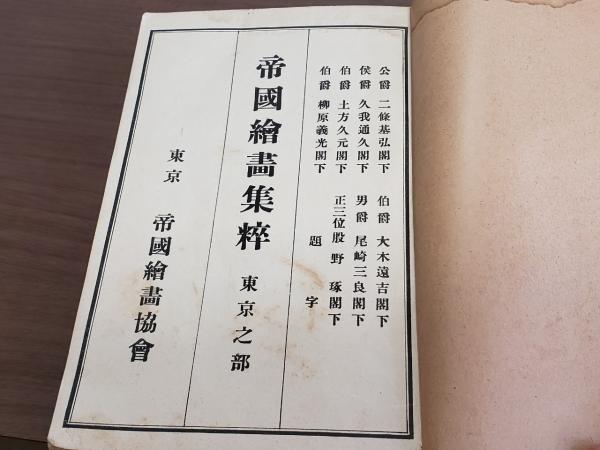 公爵 二條基弘閣下 伯爵 大木遠吉閣下
侯爵 久我通久閣下 男爵 尾崎三良閣下
伯爵 土方久元閣下 正三位股野 琢閣下
伯爵 柳原義光閣下 題字
帝國繪畫集粹 東京之部
東京 帝國繪畫協會